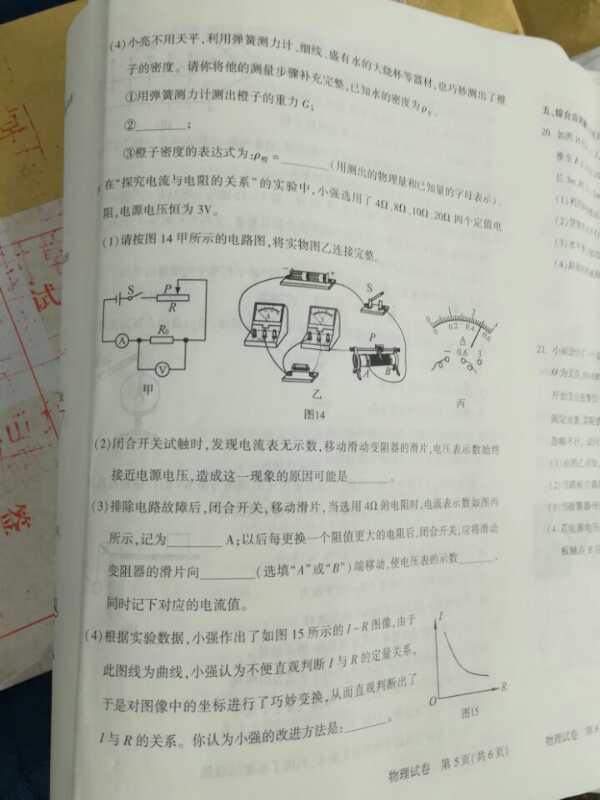 (4)小亮不用天平,利用弹簧测力计、细线、盛有水的大烧杯等器材,也巧妙测出了橙
子的密度。请你将他的测量步骤补充完整,已知水的密度为ρ水。
①用弹簧测力计测出橙子的重力G;
②________;
③橙子密度的表达式为:ρ橙=________(用测出的物理量和已知量的字母表示)。
在“探究电流与电阻的关系”的实验中,小强选用了4Ω、8Ω、10Ω、20Ω四个定值电
阻,电源电压恒为3V。
(1)请按图14甲所示的电路图,将实物图乙连接完整。
S P
R
A R₀
V
甲
S
P
A B
乙
0 0.2 0.4 0.6
A
- 0.6 3
丙
图14
(2)闭合开关试触时,发现电流表无示数,移动滑动变阻器的滑片,电压表示数始终
接近电源电压,造成这一现象的原因可能是________。
(3)排除电路故障后,闭合开关,移动滑片,当选用4Ω的电阻时,电流表示数如图丙
所示,记为________A;以后每更换一个阻值更大的电阻后,闭合开关,应将滑动
变阻器的滑片向________(选填“A”或“B”)端移动,使电压表的示数________,
同时记下对应的电流值。
(4)根据实验数据,小强作出了如图15所示的I-R图像,由于
此图线为曲线,小强认为不便直观判断I与R的定量关系。
于是对图像中的坐标进行了巧妙变换,从而直观判断出了
I与R的关系。你认为小强的改进方法是:________。
I
O R
图15
物理试卷 第5页(共6页)
五、综合应用
20. 如图
(1)
(2)
(3)
(4)
21. 小
(1)
(2)
(3)
(4)
物理试卷 第6